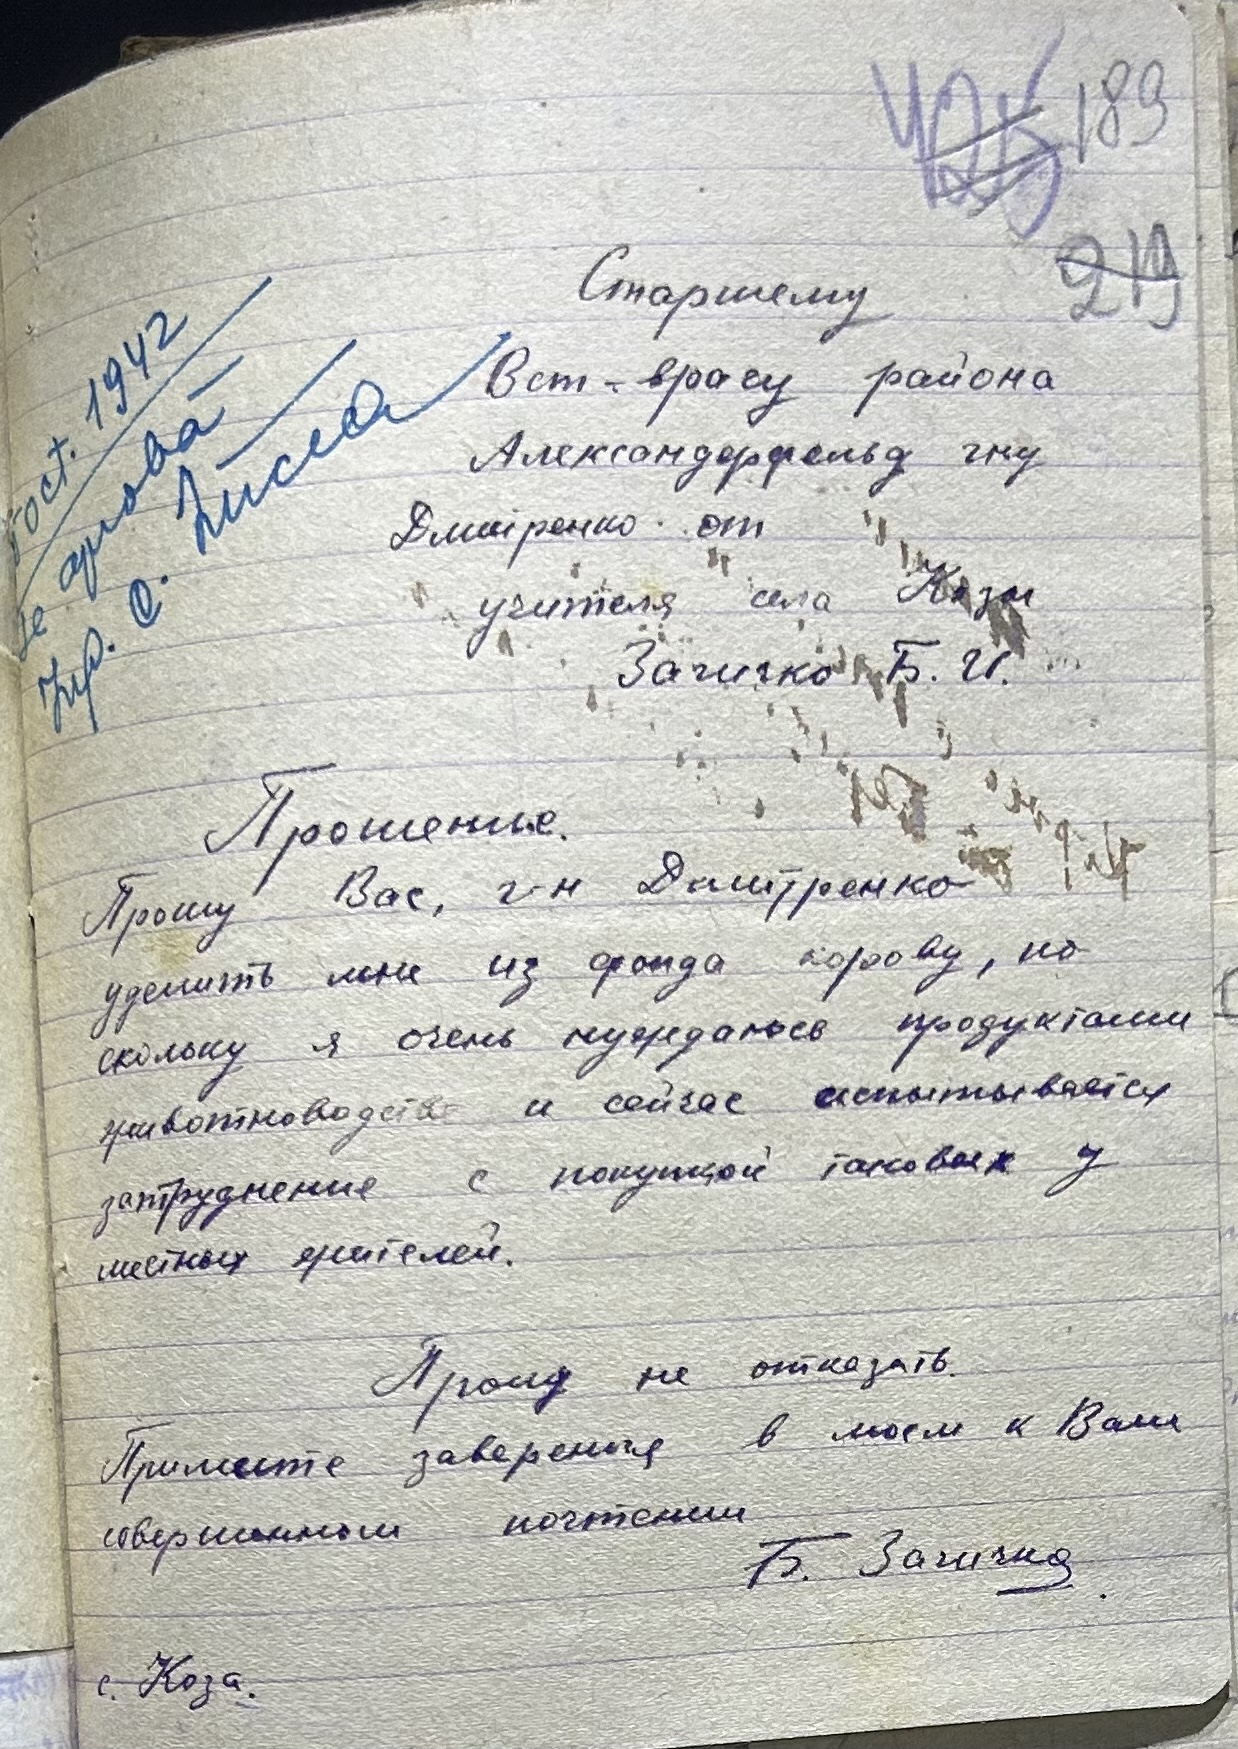 189
219
Старшему
Вет-врачу района
Александерфельд г-ну
Дмитренко от
учителя села Козы
Загичко Б. И.
1942
Прошение.
Прошу Вас, г-н Дмитренко
уделить мне из фонда корову, по-
скольку я очень нуждаюсь продуктами
животноводства и сейчас испытывается
затруднение с покупкой таковых у
местных жителей.
Прошу не отказать.
Примите заверения в моем к Вам
совершенном почтении
Б. Загичко
с. Коза.